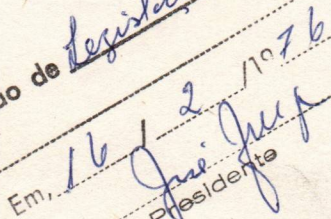 ão de Registo
Em, 16 / 2 /1976
José
Presidente